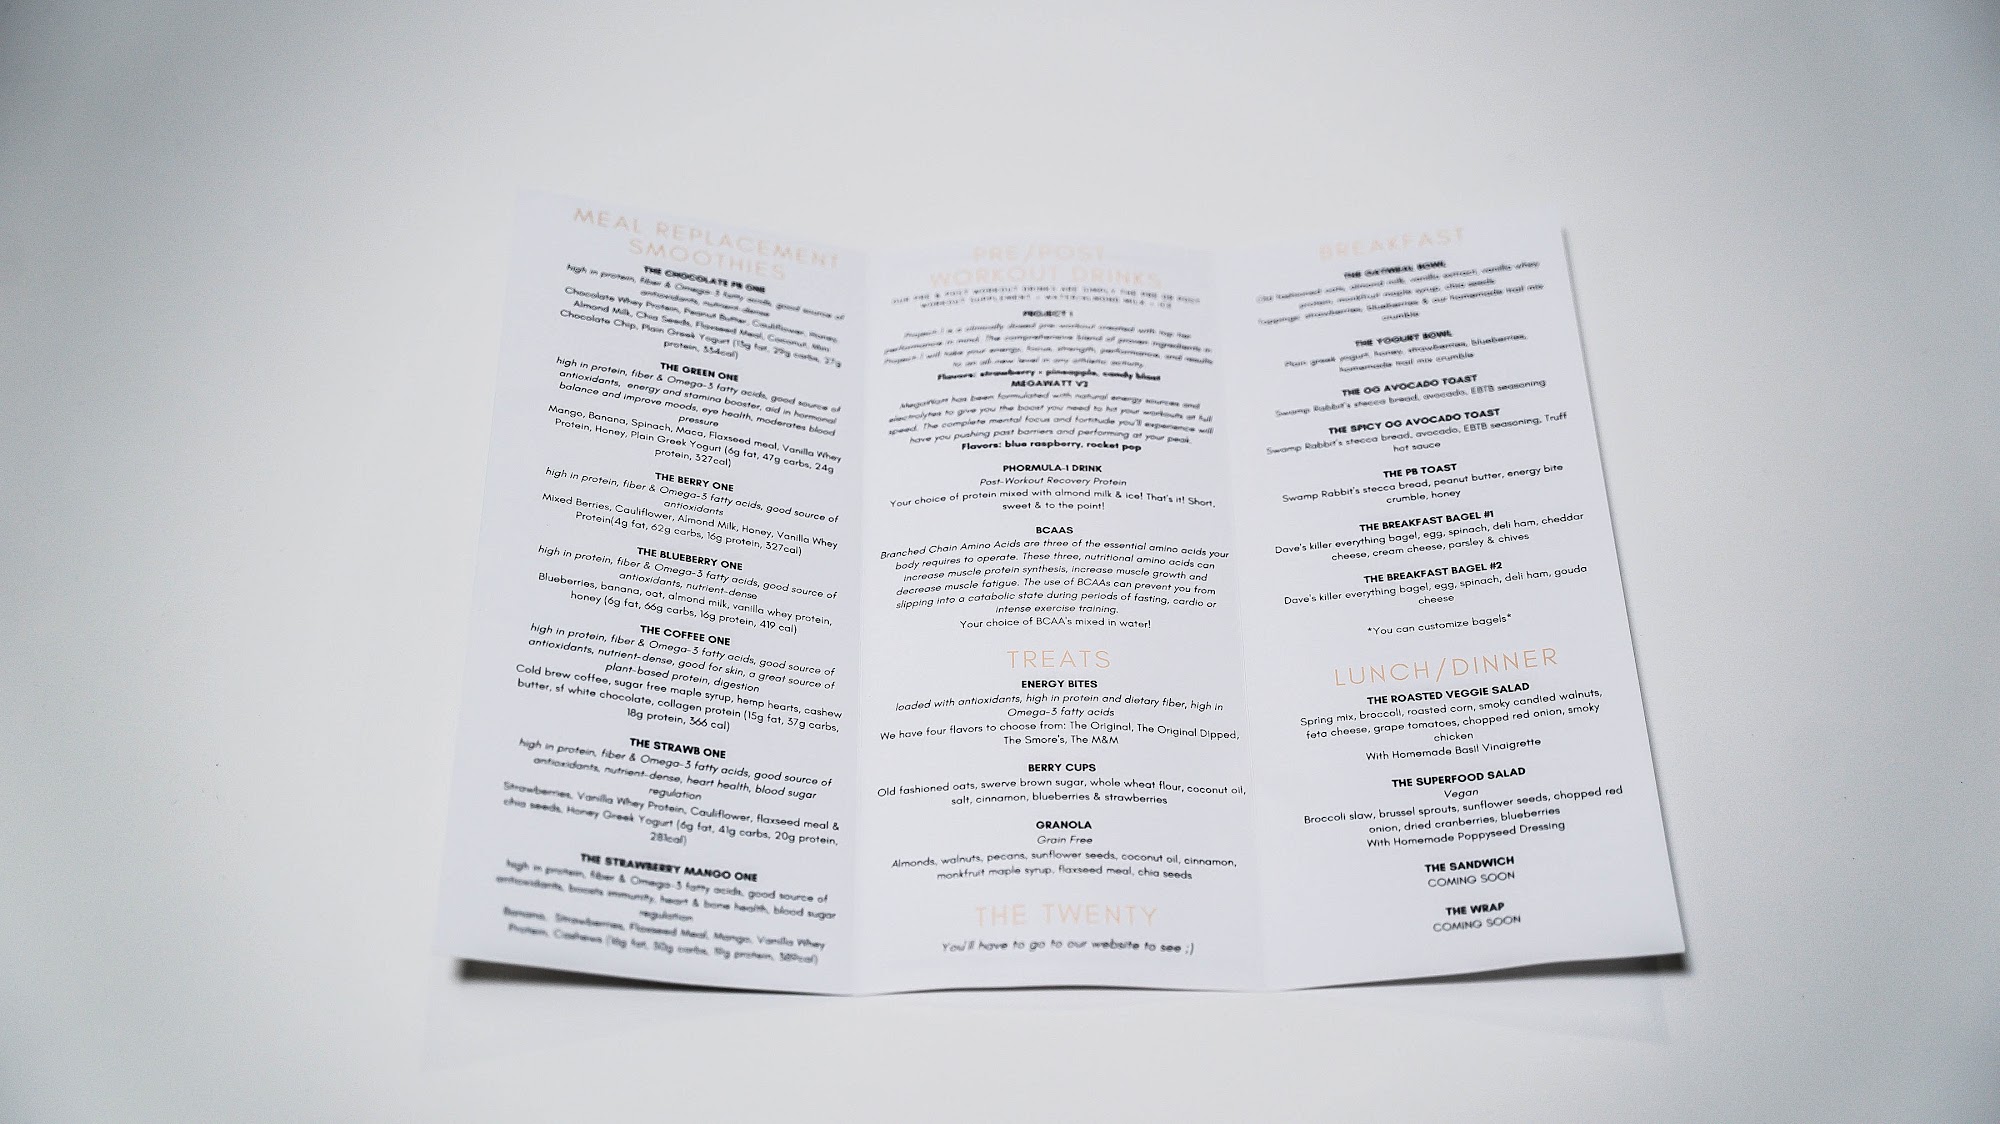 MEAL REPLACEMENT
SMOOTHIES
THE CHOCOLATE PB ONE
high in protein, fiber & Omega-3 fatty acids, good source of
antioxidants, nutrient-dense
Chocolate Whey Protein, Peanut Butter, Cauliflower, Honey,
Almond Milk, Chia Seeds, Flaxseed Meal, Coconut, Mini
Chocolate Chip, Plain Greek Yogurt (13g fat, 29g carbs, 27g
protein, 334cal)
THE GREEN ONE
high in protein, fiber & Omega-3 fatty acids, good source of
antioxidants, energy and stamina booster, aid in hormonal
balance and improve moods, eye health, moderates blood
pressure
Mango, Banana, Spinach, Maca, Flaxseed meal, Vanilla Whey
Protein, Honey, Plain Greek Yogurt (6g fat, 47g carbs, 24g
protein, 327cal)
THE BERRY ONE
high in protein, fiber & Omega-3 fatty acids, good source of
antioxidants
Mixed Berries, Cauliflower, Almond Milk, Honey, Vanilla Whey
Protein(4g fat, 62g carbs, 16g protein, 327cal)
THE BLUEBERRY ONE
high in protein, fiber & Omega-3 fatty acids, good source of
antioxidants, nutrient-dense
Blueberries, banana, oat, almond milk, vanilla whey protein,
honey (6g fat, 66g carbs, 16g protein, 419 cal)
THE COFFEE ONE
high in protein, fiber & Omega-3 fatty acids, good source of
antioxidants, nutrient-dense, good for skin, a great source of
plant-based protein, digestion
Cold brew coffee, sugar free maple syrup, hemp hearts, cashew
butter, sf white chocolate, collagen protein (15g fat, 37g carbs,
18g protein, 366 cal)
THE STRAWB ONE
high in protein, fiber & Omega-3 fatty acids, good source of
antioxidants, nutrient-dense, heart health, blood sugar
regulation
Strawberries, Vanilla Whey Protein, Cauliflower, flaxseed meal &
chia seeds, Honey Greek Yogurt (6g fat, 41g carbs, 20g protein,
281cal)
THE STRAWBERRY MANGO ONE
high in protein, fiber & Omega-3 fatty acids, good source of
antioxidants, boosts immunity, heart & bone health, blood sugar
regulation
Banana, Strawberries, Flaxseed Meal, Mango, Vanilla Whey
Protein, Cashews fat, 50g carbs, protein,
PRE/POST
WORKOUT DRINKS
OUR PRE & POST WORKOUT DRINKS ARE SIMPLY THE PRE OR POST
WORKOUT SUPPLEMENT + WATER/ALMOND MILK + ICE
PROJECT 1
Project-1 is a clinically dosed pre workout created with top tier
performance in mind. The comprehensive blend of proven ingredients in
Project-1 will take your energy, focus, strength, performance, and results
to an all-new level in any athletic activity.
Flavors: strawberry - pineapple, candy blast
MEGAWATT V2
MegaWatt has been formulated with natural energy sources and
electrolytes to give you the boost you need to hit your workouts at full
speed. The complete mental focus and fortitude you'll experience will
have you pushing past barriers and performing at your peak.
Flavors: blue raspberry, rocket pop
PHORMULA-1 DRINK
Post-Workout Recovery Protein
Your choice of protein mixed with almond milk & ice! That's it! Short,
sweet & to the point!
BCAAS
Branched Chain Amino Acids are three of the essential amino acids your
body requires to operate. These three, nutritional amino acids can
increase muscle protein synthesis, increase muscle growth and
decrease muscle fatigue. The use of BCAAs can prevent you from
slipping into a catabolic state during periods of fasting, cardio or
intense exercise training.
Your choice of BCAA's mixed in water!
TREATS
ENERGY BITES
loaded with antioxidants, high in protein and dietary fiber, high in
Omega-3 fatty acids
We have four flavors to choose from: The Original, The Original Dipped,
The Smore's, The M&M
BERRY CUPS
Old fashioned oats, swerve brown sugar, whole wheat flour, coconut oil,
salt, cinnamon, blueberries & strawberries
GRANOLA
Grain Free
Almonds, walnuts, pecans, sunflower seeds, coconut oil, cinnamon,
monkfruit maple syrup, flaxseed meal, chia seeds
THE TWENTY
You'll have to go to our website to see ;)
BREAKFAST
THE OATMEAL BOWL
Old fashioned oats, almond milk, vanilla extract, vanilla whey
protein, monkfruit maple syrup, chia seeds
Toppings: strawberries, blueberries & our homemade trail mix
crumble
THE YOGURT BOWL
Plain greek yogurt, honey, strawberries, blueberries,
homemade trail mix crumble
THE OG AVOCADO TOAST
Swamp Rabbit's stecca bread, avocado, EBTB seasoning
THE SPICY OG AVOCADO TOAST
Swamp Rabbit's stecca bread, avocado, EBTB seasoning, Truff
hot sauce
THE PB TOAST
Swamp Rabbit's stecca bread, peanut butter, energy bite
crumble, honey
THE BREAKFAST BAGEL #1
Dave's killer everything bagel, egg, spinach, deli ham, cheddar
cheese, cream cheese, parsley & chives
THE BREAKFAST BAGEL #2
Dave's killer everything bagel, egg, spinach, deli ham, gouda
cheese
*You can customize bagels*
LUNCH/DINNER
THE ROASTED VEGGIE SALAD
Spring mix, broccoli, roasted corn, smoky candied walnuts,
feta cheese, grape tomatoes, chopped red onion, smoky
chicken
With Homemade Basil Vinaigrette
THE SUPERFOOD SALAD
Vegan
Broccoli slaw, brussel sprouts, sunflower seeds, chopped red
onion, dried cranberries, blueberries
With Homemade Poppyseed Dressing
THE SANDWICH
COMING SOON
THE WRAP
COMING SOON